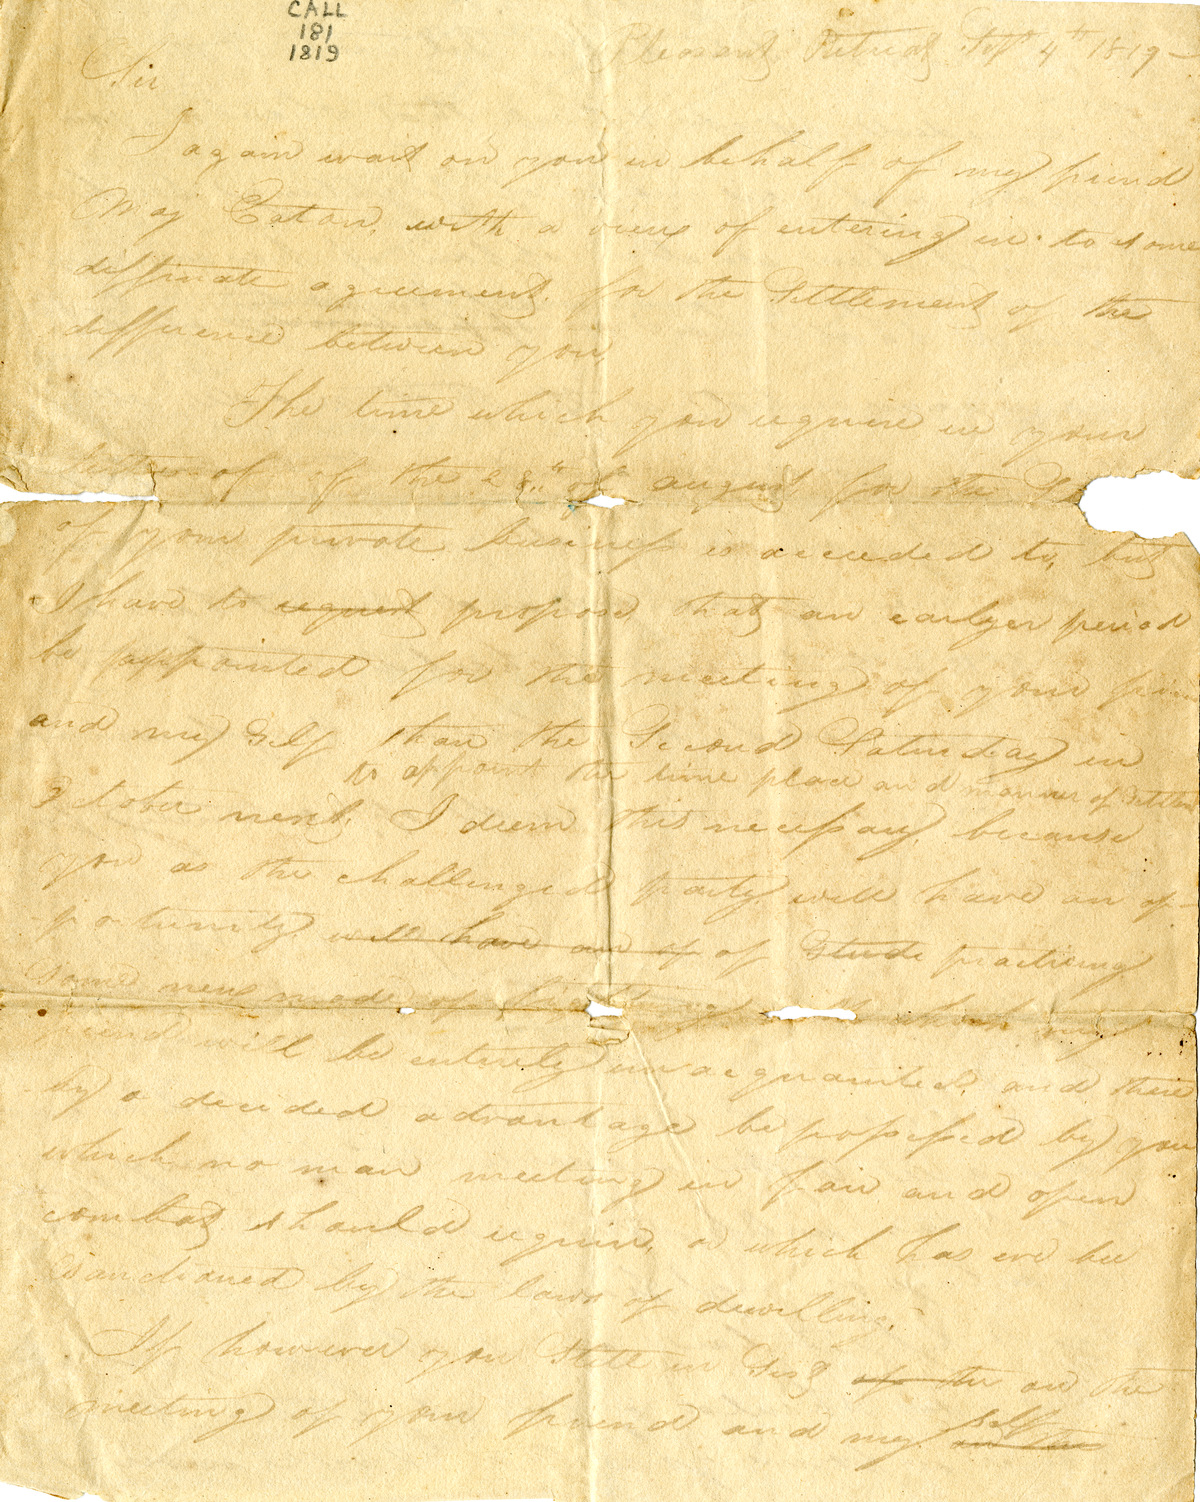 CALL
181
1819
Pleasant Retreat Sept 4th 1819 —
Sir
I again wait on you in behalf of my friend
Maj Eaton, with a view of entering in to some
diffinate agreement, for the Settlement of the
difference between you,
The time which you require in your
letter of of the 28th of august for the
of your private business is acceeded to, but
I have to request propose that an earlyer period
be appointed for the meeting of your
and my Self than the Second Saturday in
to appoint the time place and manner of
October next, I deem this necessary, because
you as the challenged party will have an op-
portunity, will have an op of Stude practicing
some new mode of fighting with which my
friend will be entirely unacquainted, and there
by a decided advantage be possessed by you
which no man meeting in fair and open
combat should require, or which has ever be
Sanctioned by the laws of duelling,
If however you Still in Sist of the on the
meeting of your friend and my Self